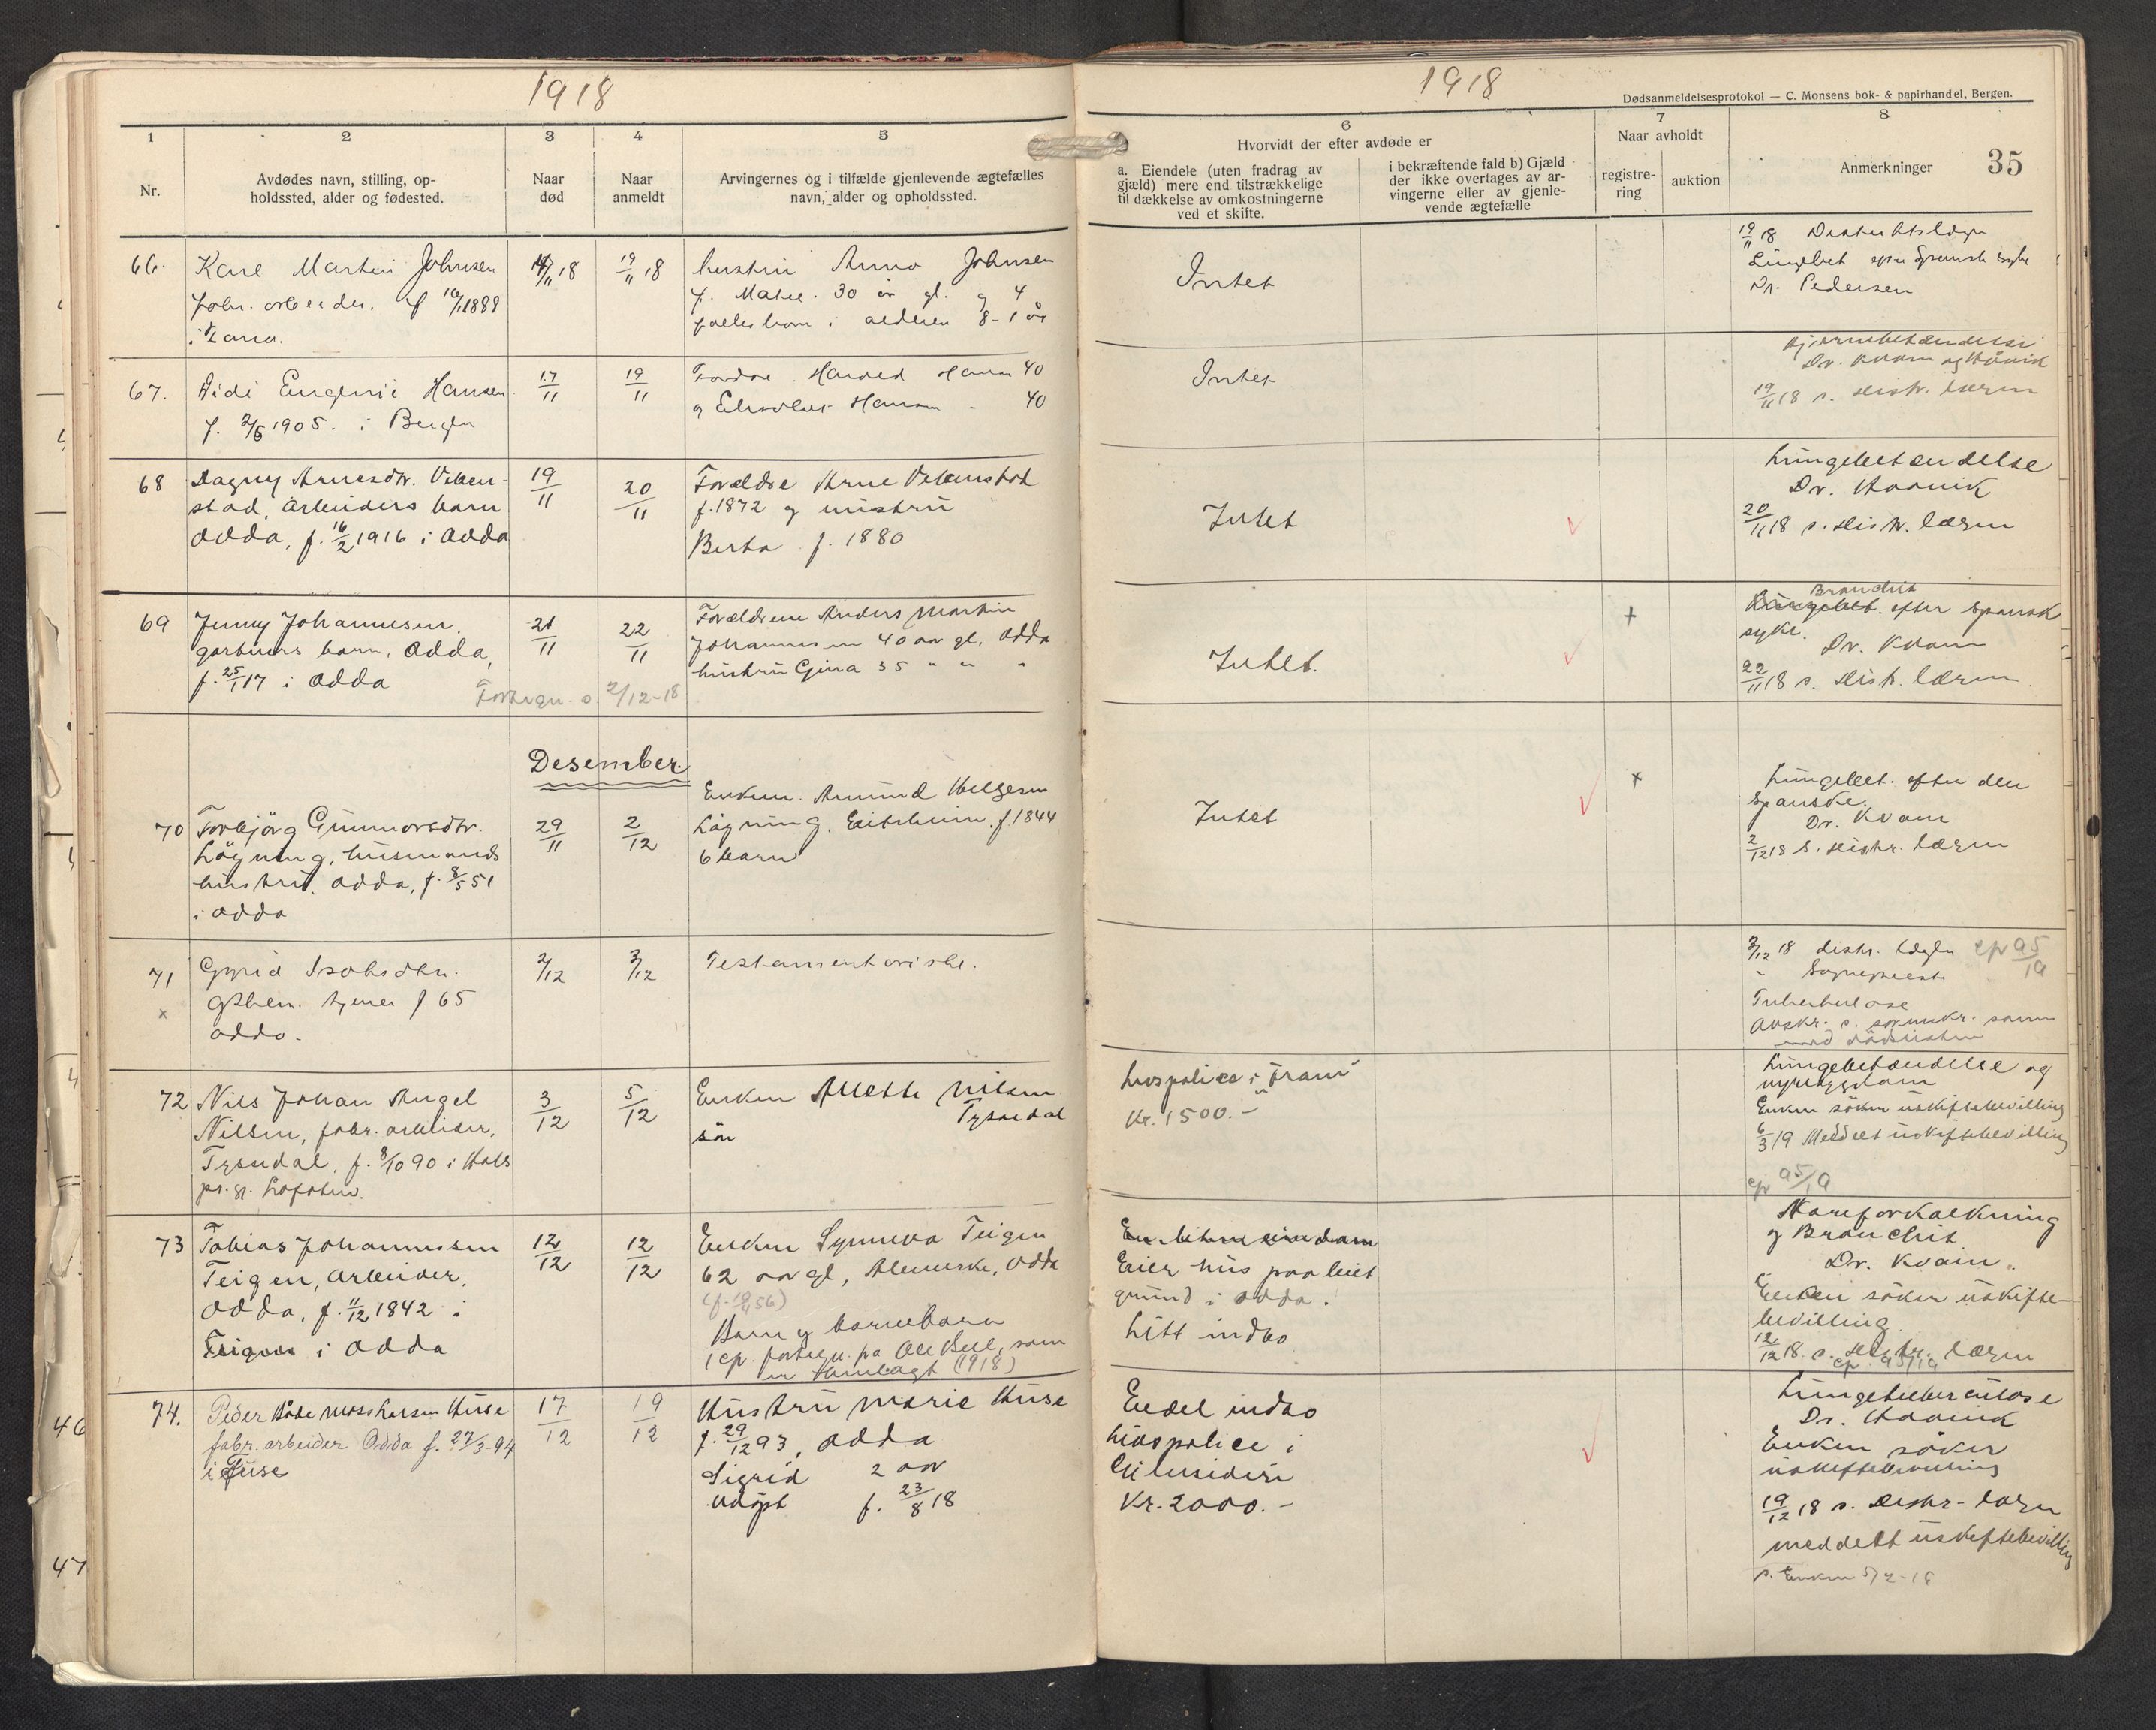 1918
1918
Dødsanmeldelsesprotokol — C. Monsens bok- & papirhandel, Bergen.
35
1
2
3
4
5
6
7
8
Nr.
Avdødes navn, stilling, op-
holdssted, alder og fødested.
Naar
død
Naar
anmeldt
Arvingernes og i tilfælde gjenlevende ægtefælles
navn, alder og opholdssted.
Hvorvidt der efter avdøde er
a. Eiendele (uten fradrag av
gjæld) mere end tilstrækkelige
til dækkelse av omkostningerne
ved et skifte.
i bekræftende fald b) Gjæld
der ikke overtages av ar-
vingerne eller av gjenle-
vende ægtefælle
Naar avholdt
registre-
ring
auktion
Anmerkninger
66.
Karl Martin Johnsen
fabr. arbeider. f 16/1 1888
i
14/11 18
19/11 18
hustru Anna Johnsen
30 år gl. og 4
i alderen 8-1 år
Intet
19/11 18
Lungebet efter Spansk syke
Dr. Pedersen
67.
Eugenie Hansen
f. 2/6 1905. i Bergen
17/11
19/11
Harald Hansen 40
og Hansen - 40
Intet
Hjernebetændelse
Dr. Kvam og Haavik
19/11 18 s. distr. lægen
68
Dagny Arnesdtr. Veben-
stad, arbeiders barn
Odda, f. 16/2 1916 i Odda
19/11
20/11
Forældre Arne Vebenstad
f. 1872 og hustru
Berta f. 1880
Intet
Lungebetændelse
Dr. Haavik
20/11 18 s. distr. lægen
69
Jenny Johannesen,
garveners barn, Odda,
f. 25/1 17 i Odda
21/11
22/11
Forældrene Anders Martin
Johannesen 40 aar gl, Odda
hustru Gina 35 " " "
2/12-18
Intet.
+
Bronchit
Lungebet. efter Spansk
syke.
Dr. Kvam
22/11 18 s. distr. lægen
Desember.
70
Torbjörg Gunnarsdtr.
Lögning, husmands
hustru, Odda, f. 8/5 51
i Odda
29/11
2/12
Enkem. Amund Helgesen
Lögning, Eitrheim. f. 1844
6 barn
Intet
+
Lungebet. efter den
Spanske.
Dr. Kvam
2/12 18 s. distr. lægen
71
x
Gyrid Isaksdtr.
tjener f 65
Odda.
2/12
3/12
Testamentariske.
3/12 18 distr. lægen cfr 95/19
" Sogneprest
Tuberkulose
72
Nils Johan Angel
Nilsen, fabr. arbeider,
Tyssedal, f. 8/10 90 i Hols
pr. gj. Lofoten.
3/12
5/12
Enken Alette Nilsen
Tyssedal
sön
Livspolice i "Fram"
Kr. 1500.-
Lungebetændelse og
nyresygdom
Enken söker uskiftebevilling
6/3 19 Meddelt uskiftebevilling
cfr 95/19
73
Tobias Johannessen
Teigen, arbeider,
Odda, f. 11/12 1842 i
Teigen i Odda
12/12
12/12
Enken Synneva Teigen
62 aar gl, Almerske, Odda
Barn og barnebarn
1 cp. fortegn. på Ole Bull, som
er fremlagt (1918)
En liten eiendom
Eier hus paa leiet
grund i Odda.
Litt indbo
Aareforkalkning
og Bronchit
Dr. Kvam.
Enken söker uskifte-
bevilling
12/12 18. s. distr. lægen
cfr. 95/19
74.
Huse
fabr. arbeider Odda f. 27/3-94
i Huse
17/12
19/12
Hustru Marie Huse
f. 29/12 93, Odda
Sigrid 2 aar
Udöpt f. 23/8 18
Endel indbo
Livspolice i
Gjensidige
Kr. 2000.-
Lungetuberculose
Dr. Haavik
Enken söker
uskiftebevilling
19/12 18 s. Distr-lægen
meddelt uskiftebevilling
s. Enken 5/2-19
46
47